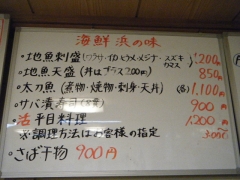 海鮮 浜の味
・地魚刺盛(ワラサ・イカ・ヒラメ・メジナ・スズキ カマス) 1,200円
・地魚天盛(丼はプラス200円) 850円
・太刀魚(煮物・焼物・刺身・天丼) (各)1,100円
・サバ漬寿司 900円
・活平目料理 1,200円〜
※調理方法はお客様の指定 3,000
・さば干物 900円